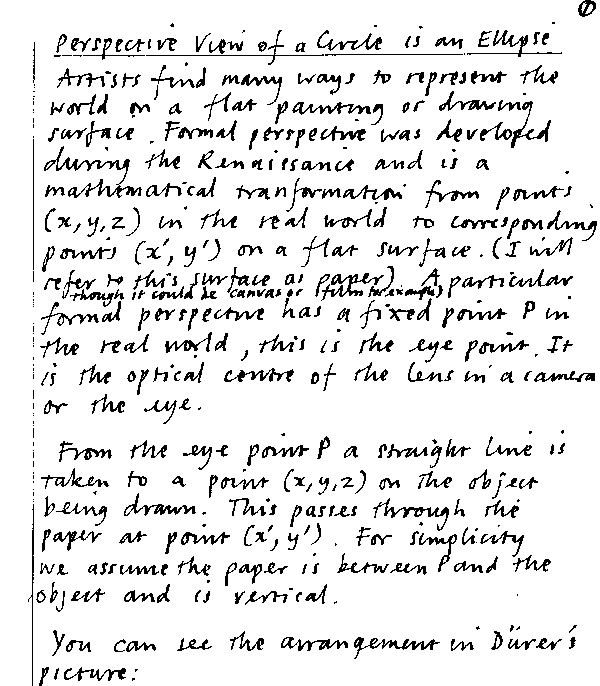 ①
Perspective View of a Circle is an Ellipse
Artists find many ways to represent the
world on a flat painting or drawing
surface. Formal perspective was developed
during the Renaissance and is a
mathematical tranformation from points
(x, y, z) in the real world to corresponding
points (x', y') on a flat surface. (I will
refer to this surface as paper). A particular
though it could be canvas or (film for example)
formal perspective has a fixed point P in
the real world, this is the eye point. It
is the optical centre of the lens in a camera
or the eye.
From the eye point P a straight line is
taken to a point (x, y, z) on the object
being drawn. This passes through the
paper at point (x', y'). For simplicity
we assume the paper is between P and the
object and is vertical.
You can see the arrangement in Dürer's
picture: